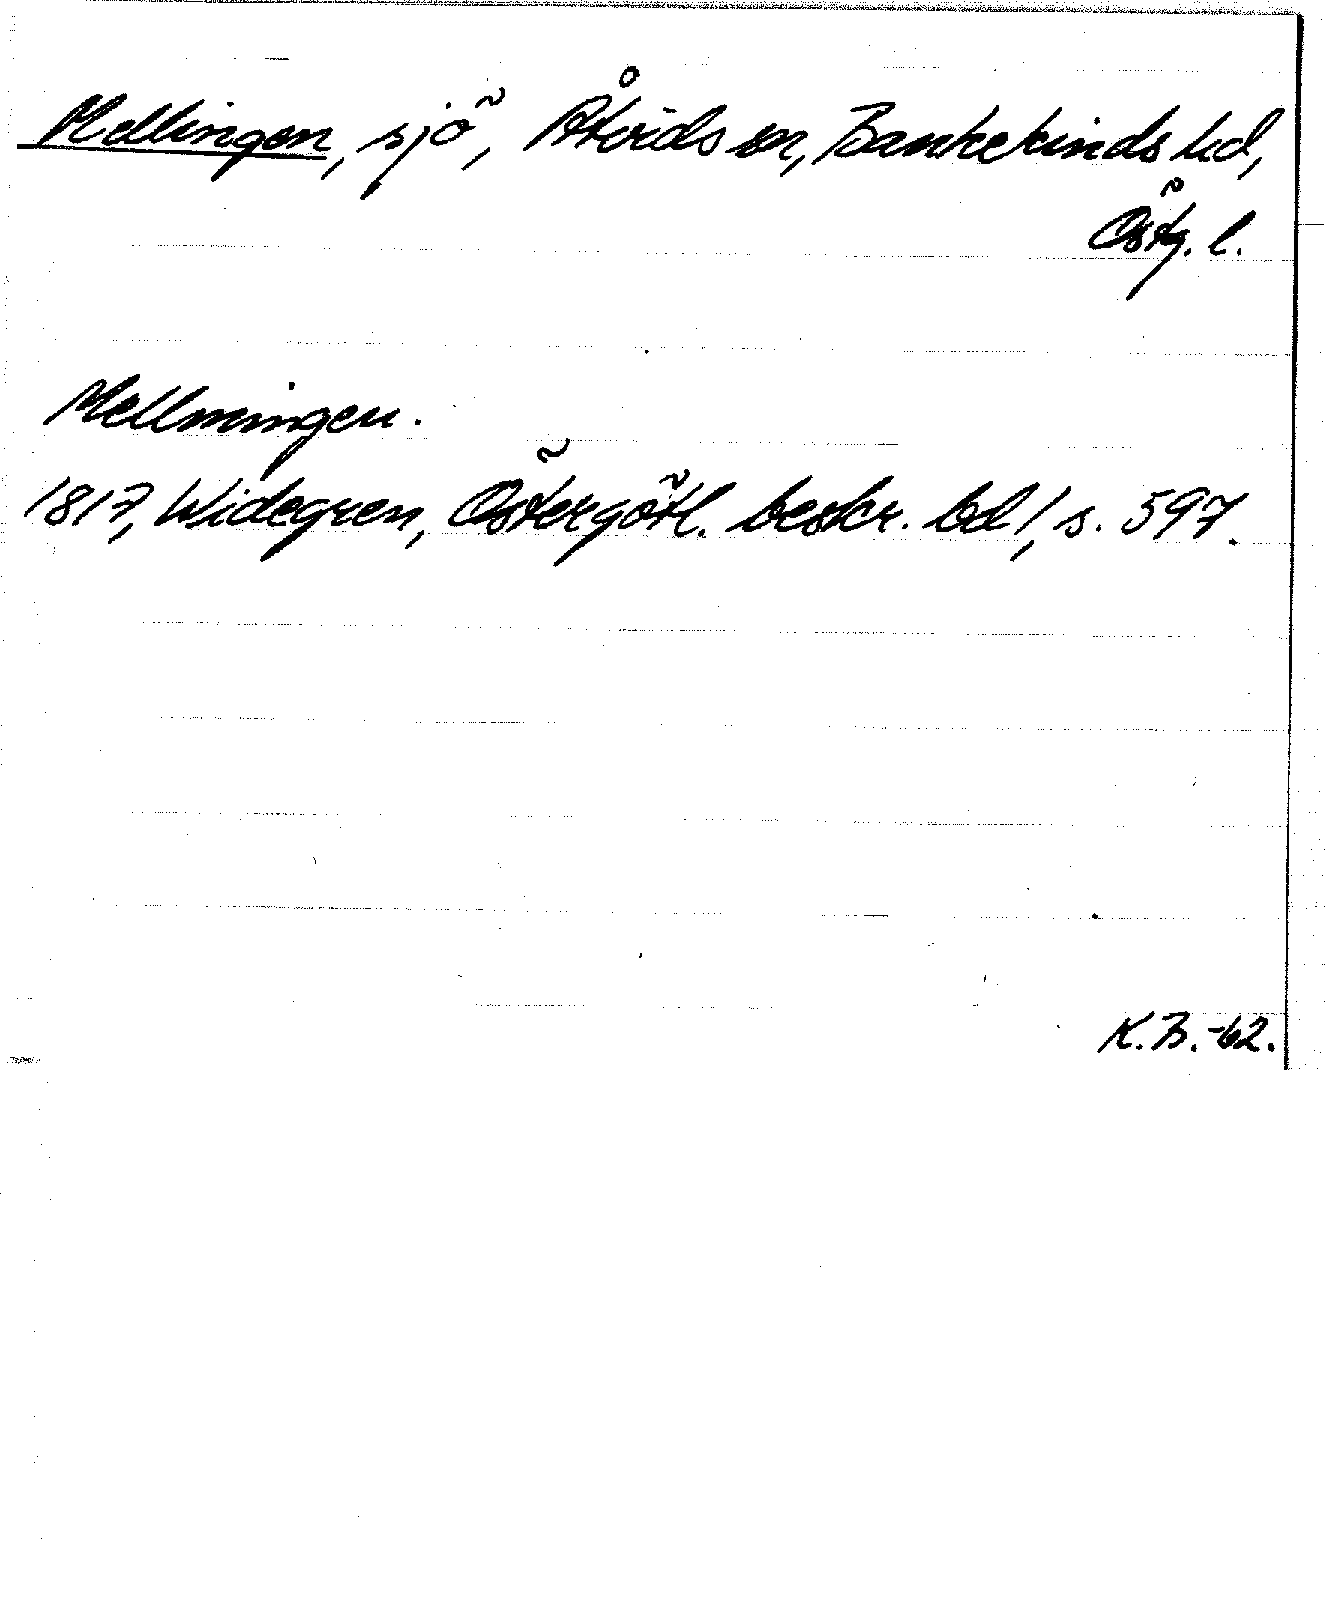 Mellingen, sjö, Åtvids sn, Bankekinds hd,
Östg. l.
Mellmingen.
1817, Widegren, Östergötl. beskr. bd 1, s. 597.
K.B.-62.